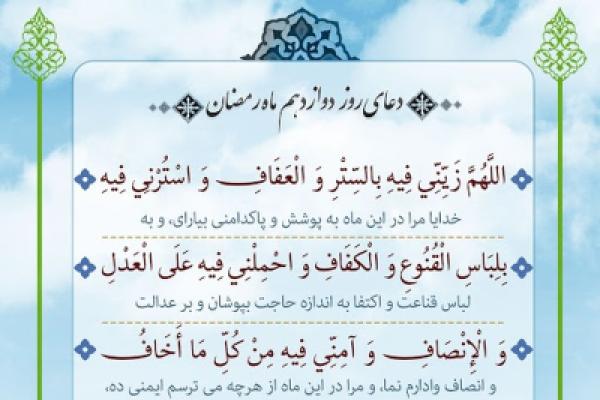 دعای روز دوازدهم ماه رمضان
اللَّهُمَّ زَيِّنِّي فِيهِ بِالسِّتْرِ وَ الْعَفَافِ وَ اسْتُرْنِي فِيهِ
خدایا مرا در این ماه به پوشش و پاکدامنی بیارای، و به
بِلِبَاسِ الْقُنُوعِ وَ الْكَفَافِ وَ احْمِلْنِي فِيهِ عَلَى الْعَدْلِ
لباس قناعت و اکتفا به اندازه حاجت بپوشان و بر عدالت
وَ الْإِنْصَافِ وَ آمِنِّي فِيهِ مِنْ كُلِّ مَا أَخَافُ
و انصاف وادارم نما، و مرا در این ماه از هرچه می ترسم ایمنی ده،